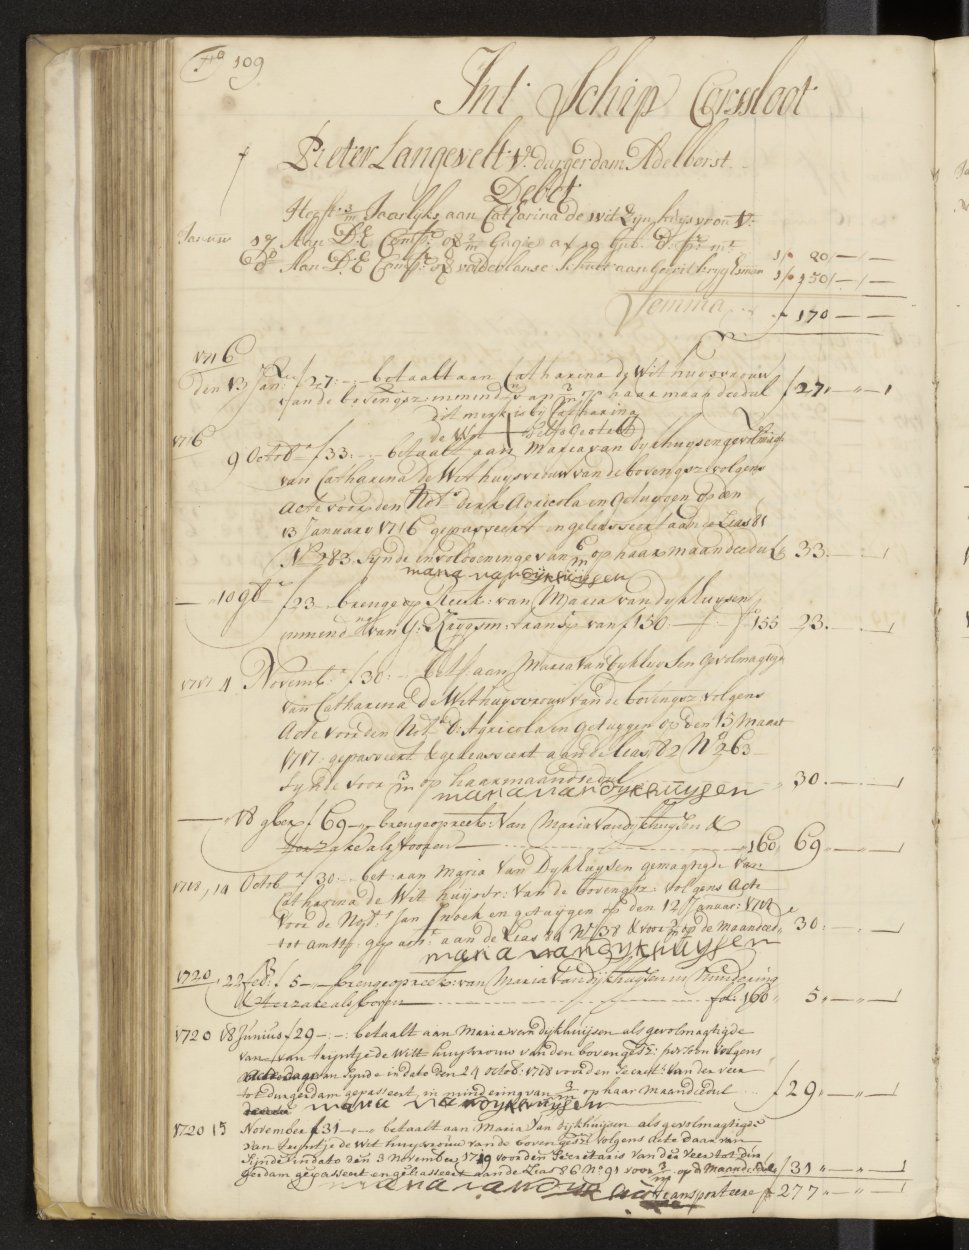 No 109
Int Schip Corssloot
Pieter Langevelt V: durgerdam Adelborst
Debet
Heeft 3/m Jaarlyks aan Catharina de wit Zyn huysvrou V:
Januw 17 Aan D: E Comp: 2/m Gagie a f 10 f 20
Do Aan D: E Comp: aan Gerrit krygsman f 150
Somma f 170
1716
den 13 Jan: f 27:-:- betaalt aan Catharina de Wit huysvrouw
van de bovengez: op haar maandcedul f 27
dit merk is by Catharina
de Wit selfs gestelt
1716
9 Octob f 33:-:- betaalt aan Maria van Dijkhuysen gevolmagt
van Catharina de Wit huysvrouw van de bovengez volgens
Acte voor den Nots dirk Agricola en Getuygen op den
13 January 1716 gepasseert en geliasseert aan de Lias 81
No 283 synde in voldoeninge van 6/m op haar maandcedul f 33
maria van dijkhuijsen
10 f 23 brenge op Reek: van Maria van dykhuysen
van G: Krygsm: van f 150 155 23
1717 4 Novemb: f 30:- bet aan Maria van Dykhuysen Gevolmagtigde
van Catharina de Wit huysvrouw van de bovengez volgens
Acte voor den Nots D: Agricola en getuygen op den 15 Maart
1717 gepasseert & geliasseert aan de lias 82 No 263
synde voor 3/m op haar maandcedul 30
maria van Dykhuysen
18 9ber f 69 brenge op reek: van Maria van dykhuysen &
ter Zake als vooren 160 69
1718, 14 Octob f 30:- bet: aan Maria van Dykhuysen gemagtigde van
Catharina de Wit huysvr: van de bovengez: volgens Acte
voor de Nots Jan Snoek en getuygen op den 12 Januar: 1718
tot amst: gepass: aan de Lias 84 No 138 & voor 3/m op de Maandced 30
maria van dykhuijsen
1720, 22 feb: f 5 brenge op reek: van Maria van dijkhuysen in mindering
& ter zake als boven fol: 160 5
1720 18 Junius f 29-:-: betaalt aan Maria van dijkhuijsen als gevolmagtigde
van Trijntje de Witt huysvrouw van den bovengesz: persoon volgens
Acte daar van synde in dato den 24 octob: 1718 voor den Secrets: van der veer
tot durgerdam gepasseert, in mindering van 3/m op haar Maandcedul f 29
maria van dykhuijsen
1720 15 November f 31 betaalt aan Maria van dijkhuijsen als gevolmagtigde
van Trijntje de Wit huysvrouw van de bovengesz volgens Acte daar van
sijnde in dato den 3 November 1719 voor den Secretaris van der veer tot dur
gerdam gepasseert en geliasseert aan de Lias 86 No 91 voor 3/m op de Maandcedul f 31
maria van dyk
Transporteere f 277